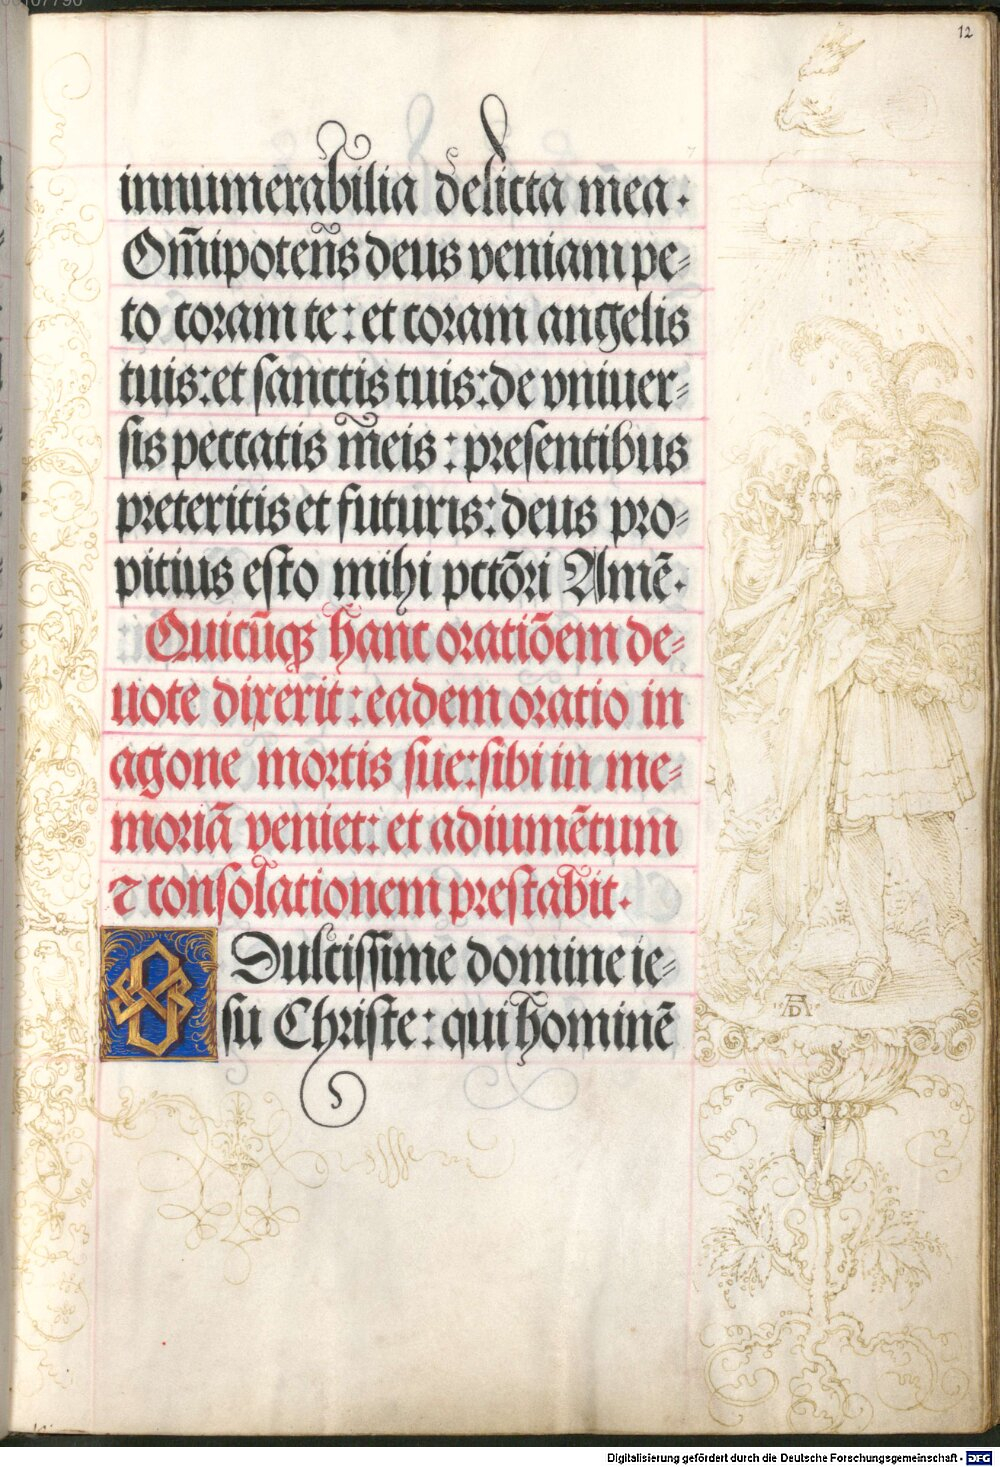 12
innumerabilia delicta mea.
Om̄ipoteñs deus veniam pe⸗
to coram te: et coram angelis
tuis: et sanctis tuis: de vniuer⸗
sis peccatis meis: presentibus
preteritis et futuris: deus pro⸗
pitius esto mihi pctōri Amē.
Quicūqꝫ hanc oratiōem de⸗
uote dixerit: eadem oratio in
agone mortis sue: sibi in me⸗
moriā veniet: et adiumētum
⁊ consolationem prestabit.
O Dulcissime domine ie⸗
su Christe: qui hominē
AD
Digitalisierung gefördert durch die Deutsche Forschungsgemeinschaft - DFG